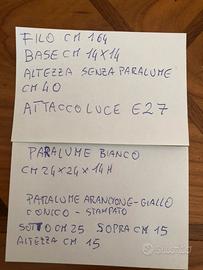 FILO CM 164
BASE CM 14X14
ALTEZZA SENZA PARALUME
CM 40
ATTACCO LUCE E27
PARALUME BIANCO
CM 24X24X14H
PARALUME ARANCIONE-GIALLO
CONICO - STAMPATO
SOTTO CM 25 SOPRA CM 15
ALTEZZA CM 15
subito